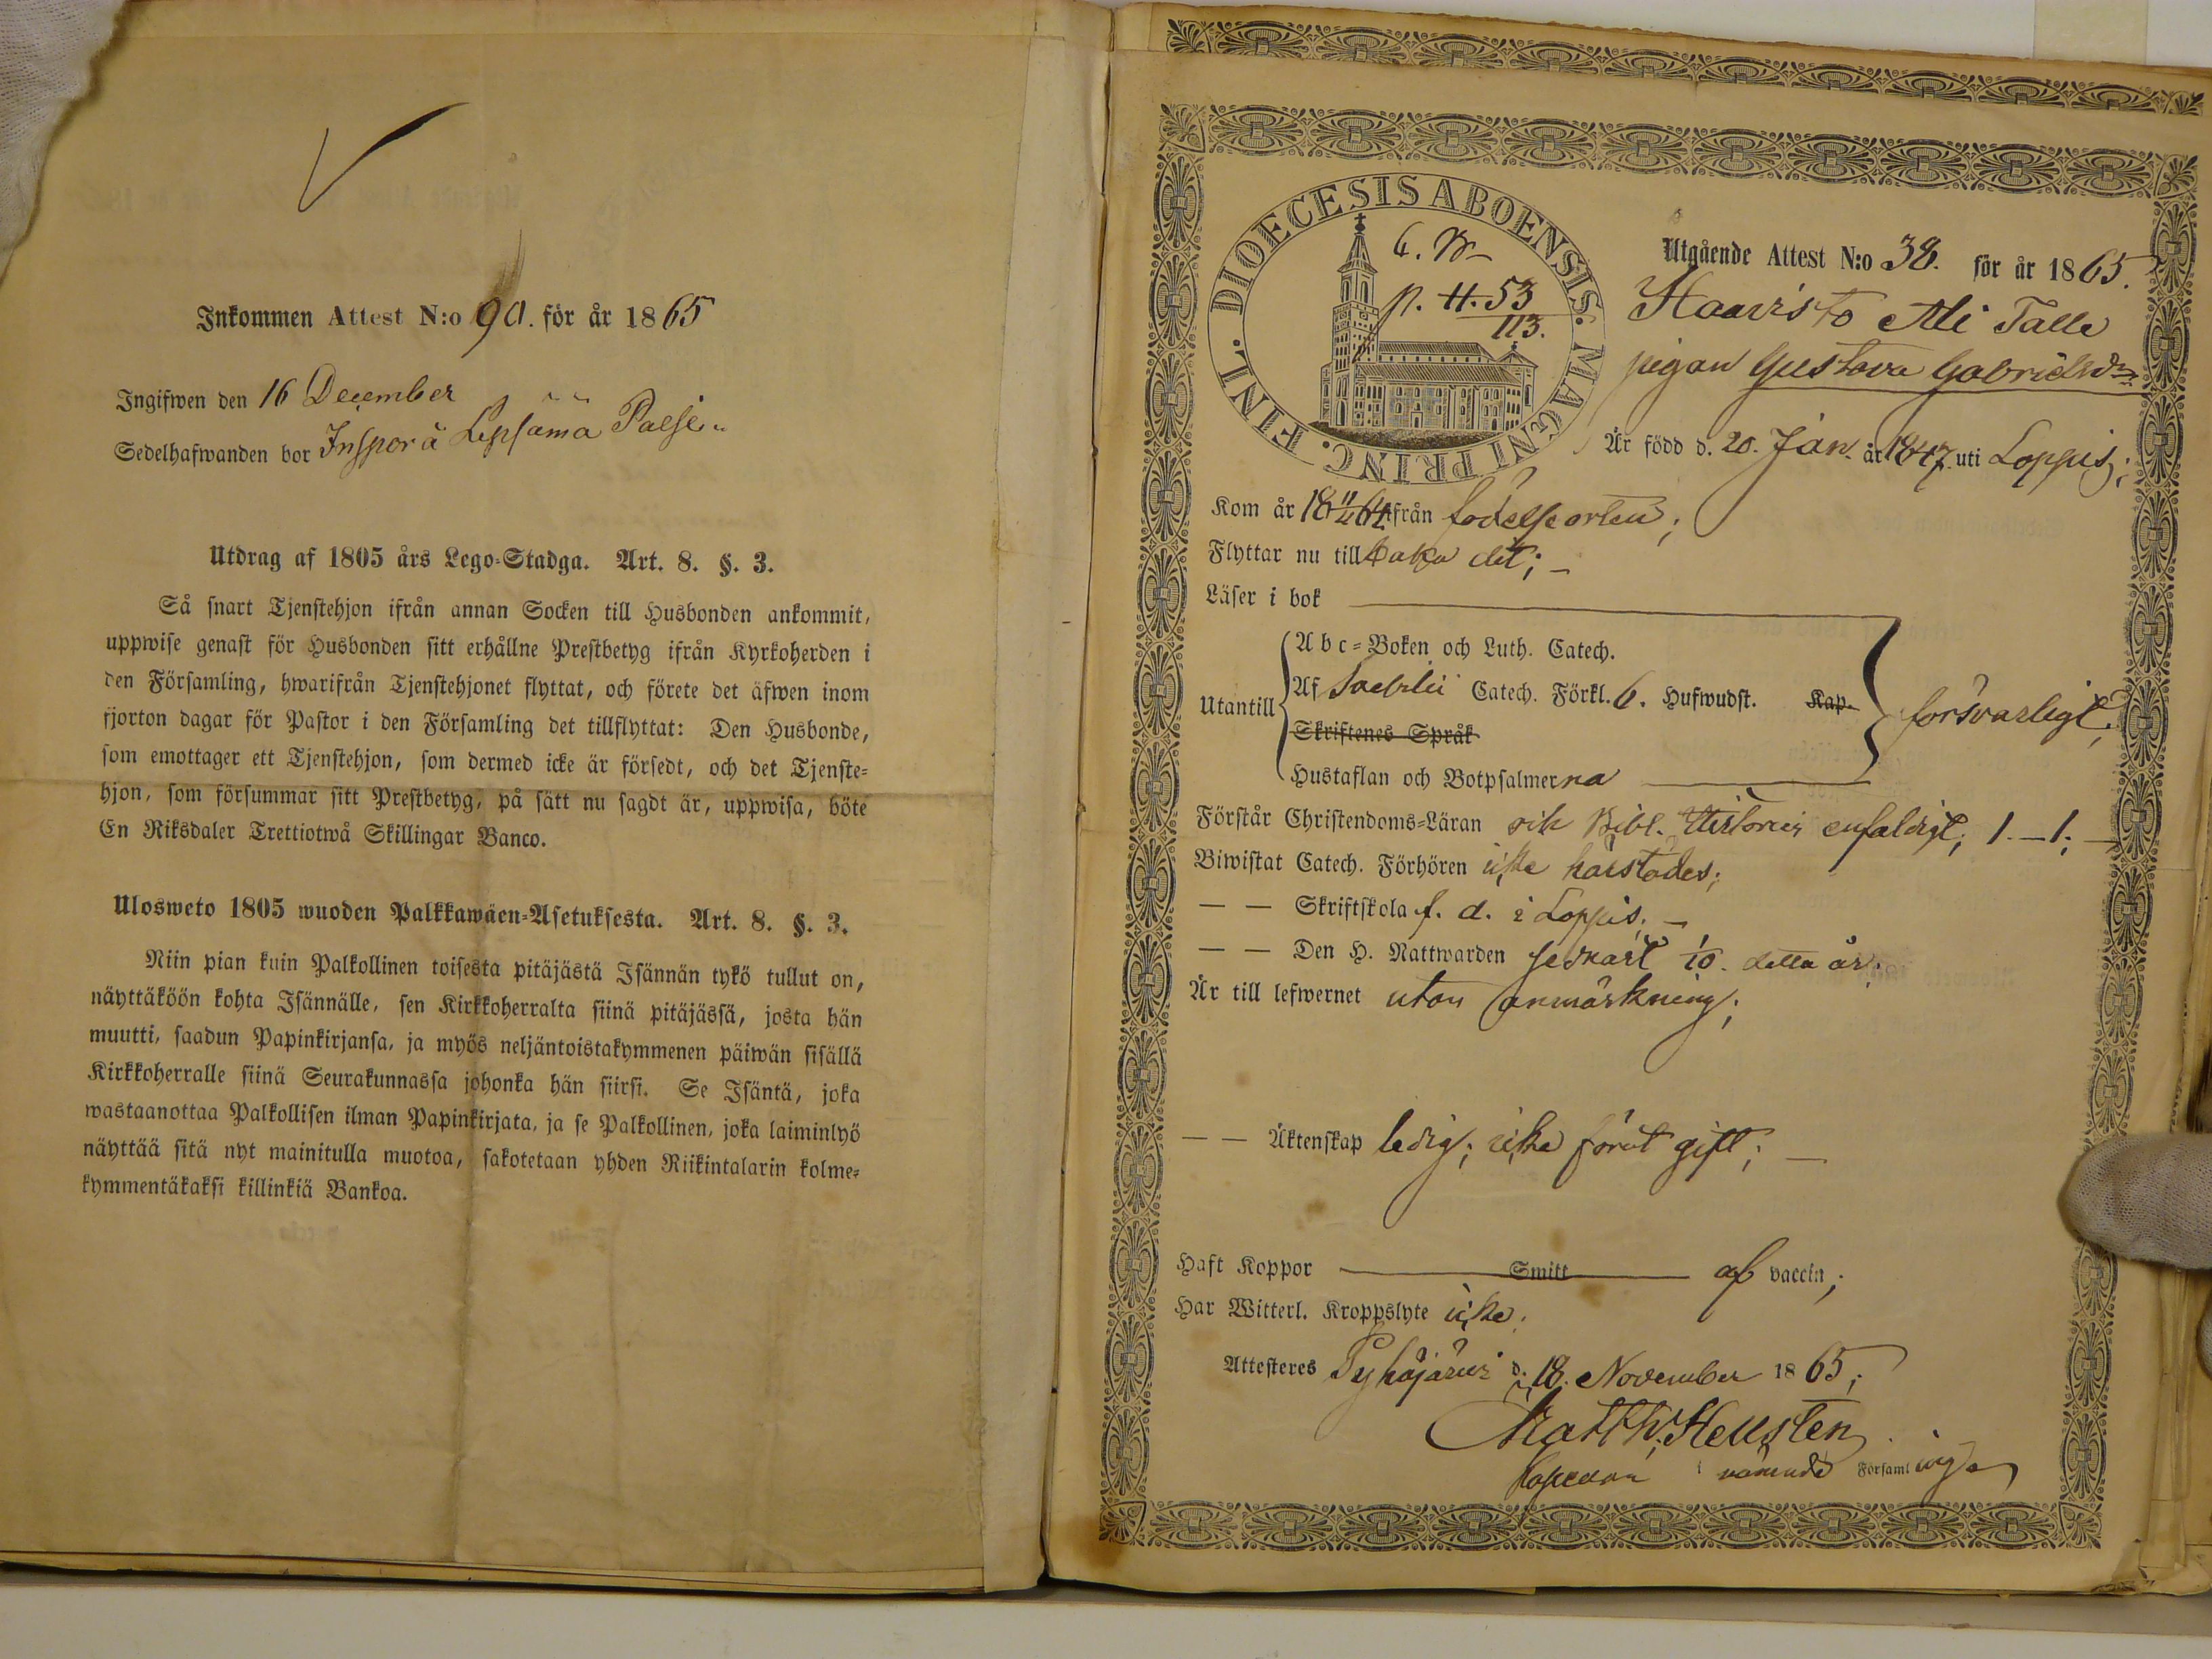 Inkommen Attest N:o 90. för år 1865
Ingifwen den 16 December
Sedelhafwanden bor Inspor å Lepsämä Palje
Utdrag af 1805 års Lego-Stadga. Art. 8. §. 3.
Så snart Tjenstehjon ifrån annan Socken till Husbonden ankommit,
uppwise genast för Husbonden sitt erhållne Prestbetyg ifrån Kyrkoherden i
den Församling, hwarifrån Tjenstehjonet flyttat, och förete det äfwen inom
fjorton dagar för Pastor i den Församling det tillflyttat: Den Husbonde,
som emottager ett Tjenstehjon, som dermed icke är försedt, och det Tjenste-
hjon, som försummar sitt Prestbetyg, på sätt nu sagdt är, uppwisa, böte
En Riksdaler Trettiotwå Skillingar Banco.
Ulosweto 1805 wuoden Palkkawäen-Asetuksesta. Art. 8. §. 3.
Niin pian kuin Palkollinen toisesta pitäjästä Isännän tykö tullut on,
näyttäköön kohta Isännälle, sen Kirkkoherralta siinä pitäjässä, josta hän
muutti, saadun Papinkirjansa, ja myös neljäntoistakymmenen päiwän sisällä
Kirkkoherralle siinä Seurakunnassa johonka hän siirsi. Se Isäntä, joka
wastaanottaa Palkollisen ilman Papinkirjata, ja se Palkollinen, joka laiminlyö
näyttää sitä nyt mainitulla muotoa, sakotetaan yhden Riikintalarin kolme-
kymmentäkaksi killinkiä Bankoa.
DIOECESIS ABOENSIS. MAGNI PRINC. FINL.
p. 53
113.
Utgående Attest N:o 38. för år 1865.
Haavisto Ali Talle
pigan Gustava Gabrielsdr
Är född d. 20. Jan. år 1847. uti Loppis;
Kom år 18 64 från födelseorten;
Flyttar nu tillbaka dit;
Läser i bok
Utantill
Abc-Boken och Luth. Catech.
Af Catech. Förkl. 6. Hufwudst. Kap.
Skriftenes Språk
Hustaflan och Botpsalmerna
försvarligt;
Förstår Christendoms-Läran och Bibl. Historien enfaldigt; 1.—1.;
Biwistat Catech. Förhören icke härstädes;
— — Skriftskola f. d. i Loppis.
— — Den H. Nattwarden sednast 10. detta år.
Är till lefwernet utan anmärkning;
— — Äktenskap ledig; icke förut gift;
Haft Koppor Smitt af vaccin;
Har Witterl. Kroppslyte icke;
Attesteres Pyhäjärvi d. 18. November 1865;
Matth: Hellsten
Kapellan i nämnde Församling